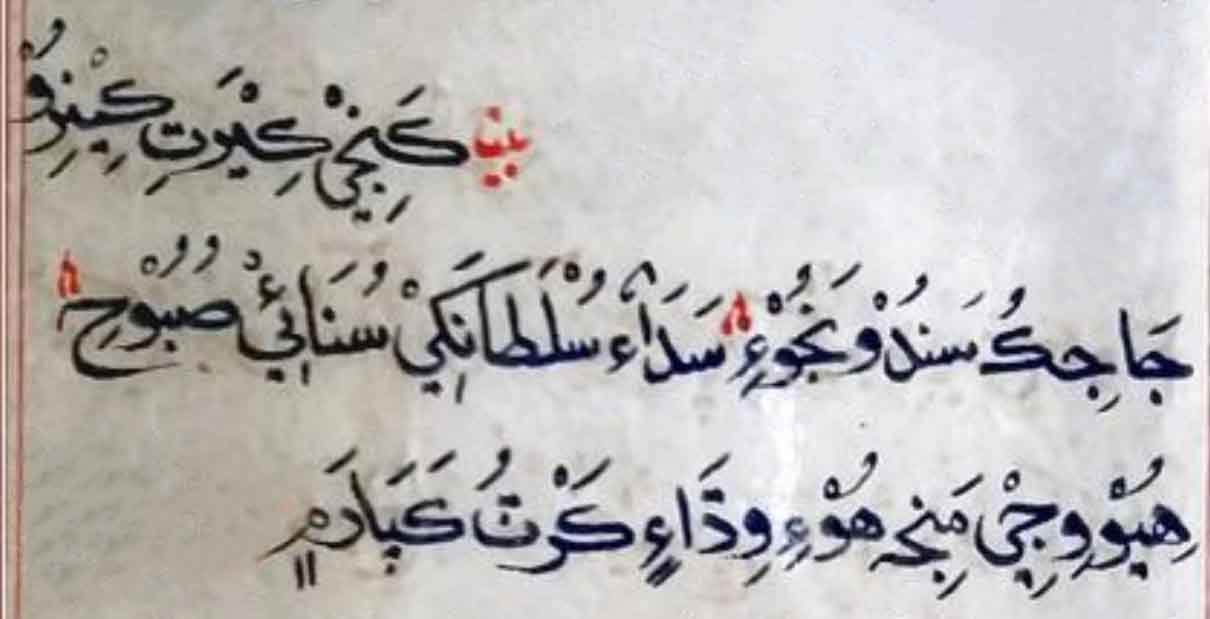 بيت كَنِجِيْ كِيْرَتِ كِيْنِرُو
جَاجِكُ سَندُوْ نَجُوْءِ سَدَآء سُلْطَانَكِيْ سُنَائِيْ صُبُوْحِ
هِيُوْ وِجِيْ مَنِجهِ هُوْءِ وِدَّاءٍ كَرْتُ كَپَارَمٍ